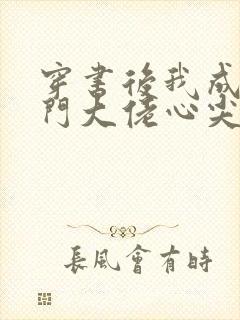 穿書後我成
門大佬心尖
長風會有時